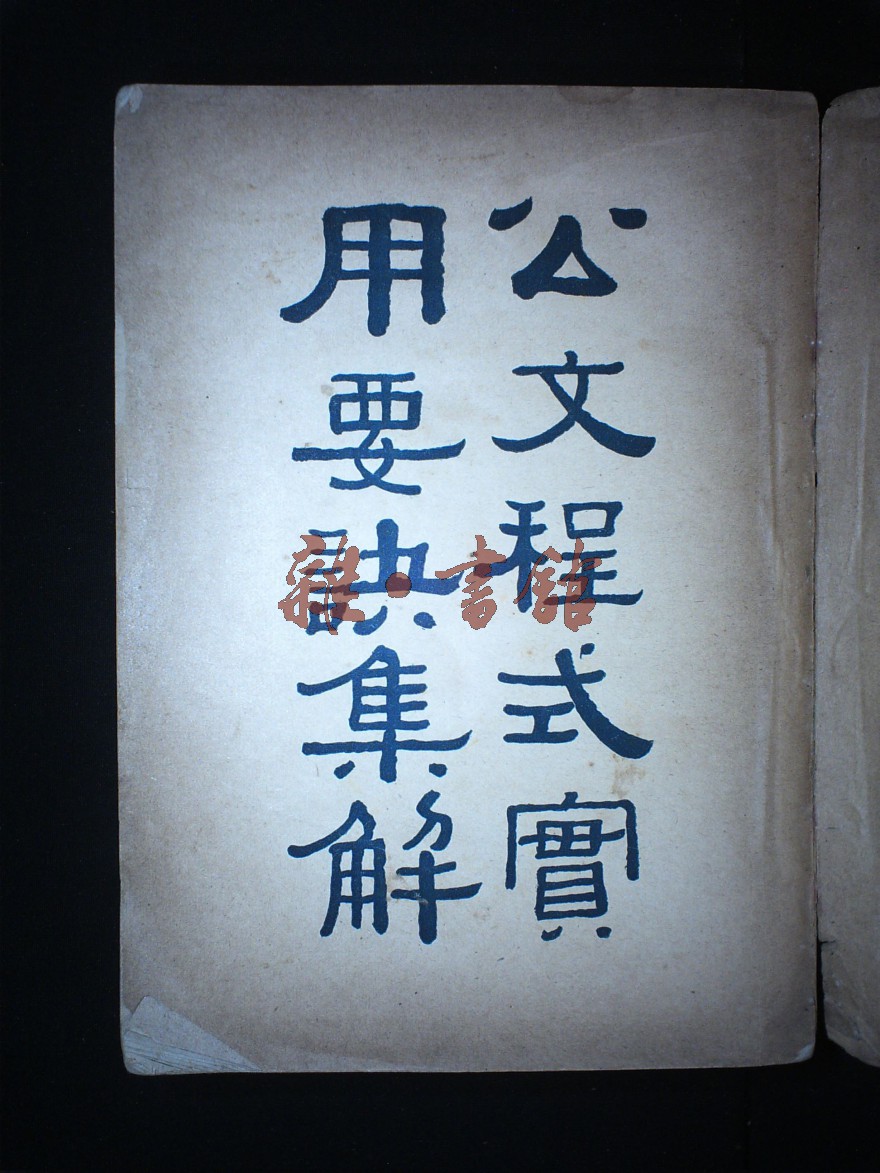 公文程式實
用要訣集解
雜·書館